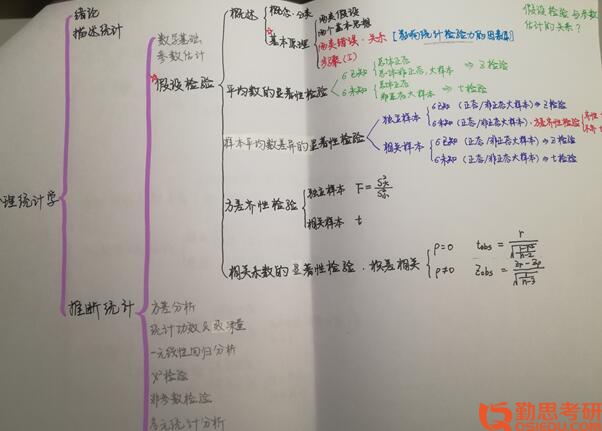 绪论
描述统计
理统计学
推断统计
数学基础
参数估计
假设检验
方差分析
统计功效与效果量
一元线性回归分析
χ²检验
非参数检验
多元统计分析
概述
概念·分类
基本原理
两类假设
两个基本思想
两类错误·关系 [影响统计检验力的因素]
步骤(3)
假设检验与参数
估计的关系?
平均数的显著性检验
σ已知
总体正态
总体非正态，大样本 ⇒ Z检验
σ未知
总体正态
非正态大样本 ⇒ t检验
样本平均数差异的显著性检验
独立样本
σ已知 (正态/非正态大样本) ⇒ Z检验
σ未知 (正态/非正态大样本)·方差齐性检验
相关样本
σ已知 (正态/非正态大样本) ⇒ Z检验
σ未知 (正态/非正态大样本) ⇒ t检验
方差齐性检验
独立样本 F=
相关样本 t
相关系数的显著性检验·积差相关
ρ=0 tobs = r/√(1-r²/n-2)
ρ≠0 Zobs = Zr-Zρ/√(1/n-3)
勤思考研
QSIEDU.COM